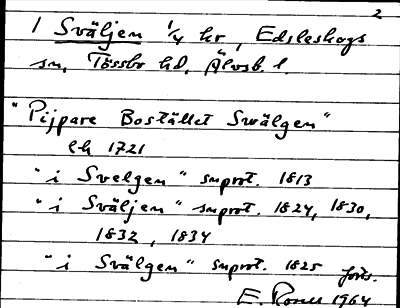 2
1 Sväljen 1/4 hr, Edsleskogs
sn, Tössbo hd, Älvsb. l.
"Pijpare Bostället Swälgen"
lh 1721
"i Svelgen" snprot. 1813
"i Sväljen" snprot. 1824, 1830,
1832, 1834
"i Svälgen" snprot. 1825 forts.
E. 1964